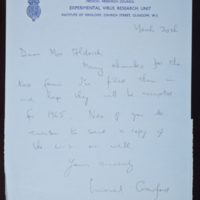 MEDICAL RESEARCH COUNCIL
EXPERIMENTAL VIRUS RESEARCH UNIT
INSTITUTE OF VIROLOGY, CHURCH STREET, GLASGOW, W.1
March 30th
Dear Mrs Aldrich
Many thanks for the
two forms. I've filled them in
and hope they will be accepted
for 1965. Nice of you to
remember to send a copy of
the as well
Yours sincerely
Crawford